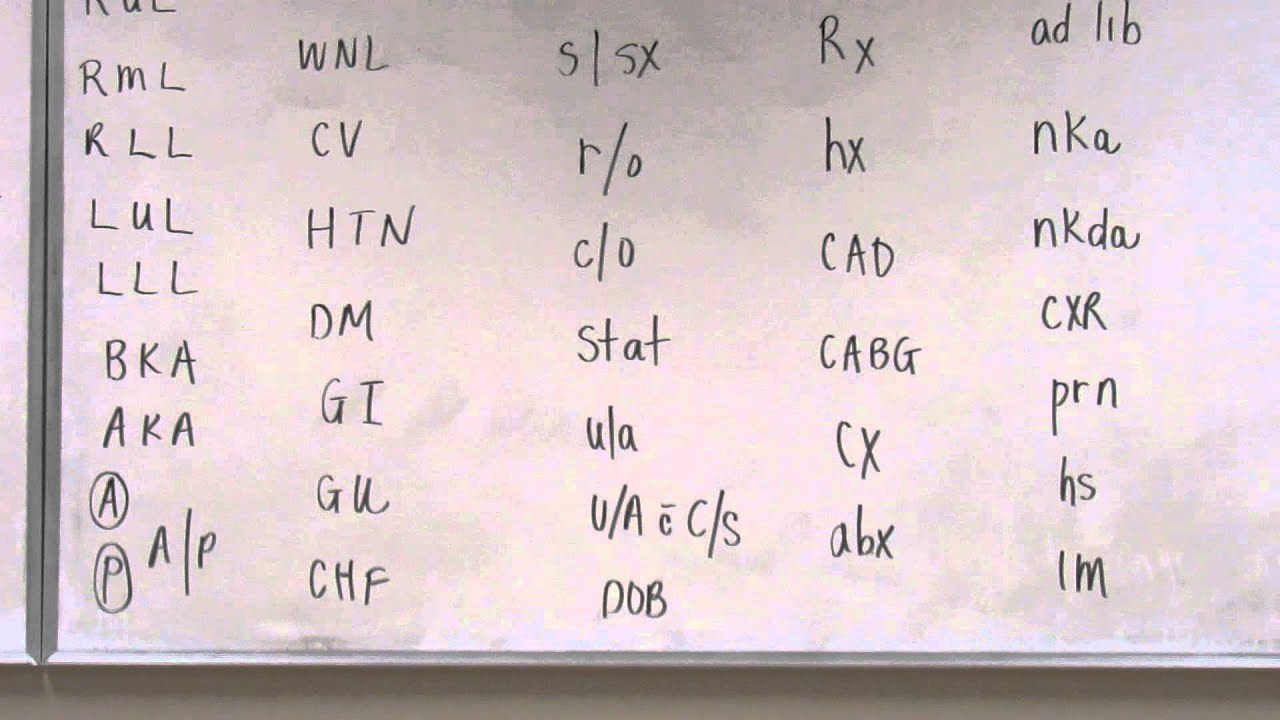 RML
RLL
LUL
LLL
BKA
AKA
A
A/p
P
WNL
CV
HTN
DM
GI
GU
CHF
s/sx
r/o
c/o
stat
u/a
U/A c̄ C/S
DOB
Rx
hx
CAD
CABG
CX
abx
ad lib
nka
nkda
CXR
prn
hs
IM